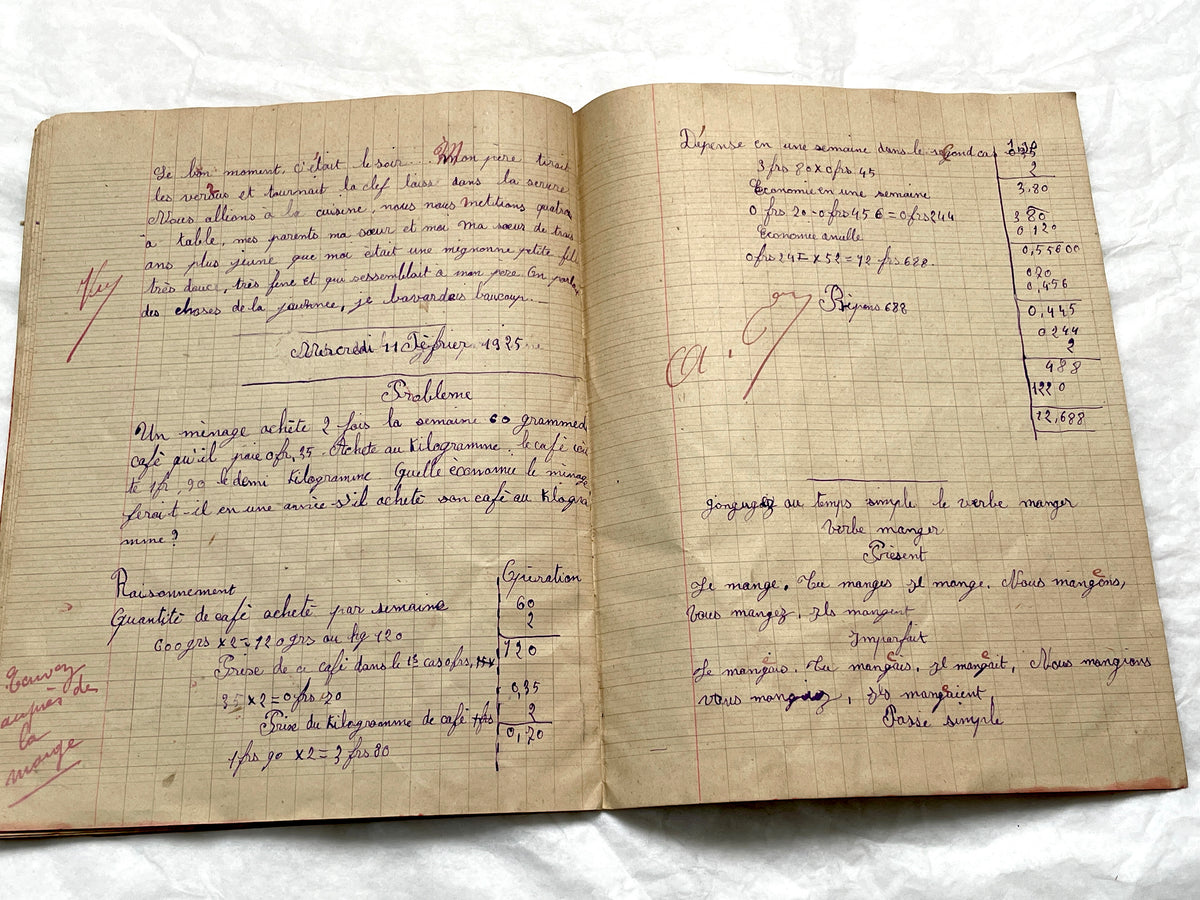 Le bon moment, c'était le soir.... Mon père tirait
les verrus et tournait la clef laiss dans la serure
Nous allions à la cuisine, nous nous mettions quatre
à table, mes parents ma sœur et moi Ma sœur de trois
ans plus jeune que moi était une mignonne petite fille
très douce, très fine et qui ressemblait à mon père On parlait
des choses de la journnée, je bavardais baucoup...
Vu
Mercredi 11 Février 1925
Problème
Un ménage achète 2 fois la semaine 60 grammed
café qu'il paie 0 fr, 35. Acheté au Kilogramme, le café coû
te 1 fr, 90 le demi Kilogramine Quelle économie le ménage
ferait-il en une année s'il achète son café au Kilogra
mme?
Raisonnement
Quantité de café acheté par semaine
600 grs x 2 = 120 grs ou kg 120
Prixe de ce café dans le 1er cas 0 frs,
35 x 2 = 0 frs 70
Prixe du Kilogramme de café 1 frs
1 frs 90 x 2 = 3 frs 80
Ecrivez
auprès de
la
marge
Opération
60
2
120
0,35
2
0,70
Dépense en une semaine dans le second cas
3 frs 80 x 0 frs 45
Economie en une semaine
0 frs 70 - 0 frs 456 = 0 frs 244
Economie anulle
0 frs 244 x 52 = 12 frs 688
Répons 688
2
3.80
3 80
0 120
0,55600
0,70
0,456
0,445
0244
2
488
1220
12,688
gongugez au temps simple le verbe manger
Verbe manger
Présent
Je mange. Tu manges il mange. Nous mangeons,
Vous mangez, Ils mangent
Imparfait
Je mangeais. Tu mangeais. Il mangeait, Nous mangions
vous mangiez, Ils mangeaient
Passé simple